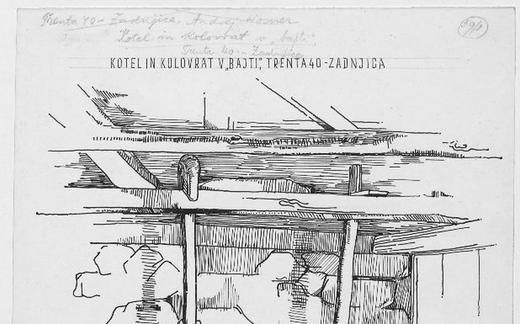 Trenta 40 - Zadnjica, Andrej Komer
Kotel in kolovrat v „bajti”
Trenta 40 - Zadnjica
KOTEL IN KOLOVRAT V „BAJTI”, TRENTA 40 - ZADNJICA